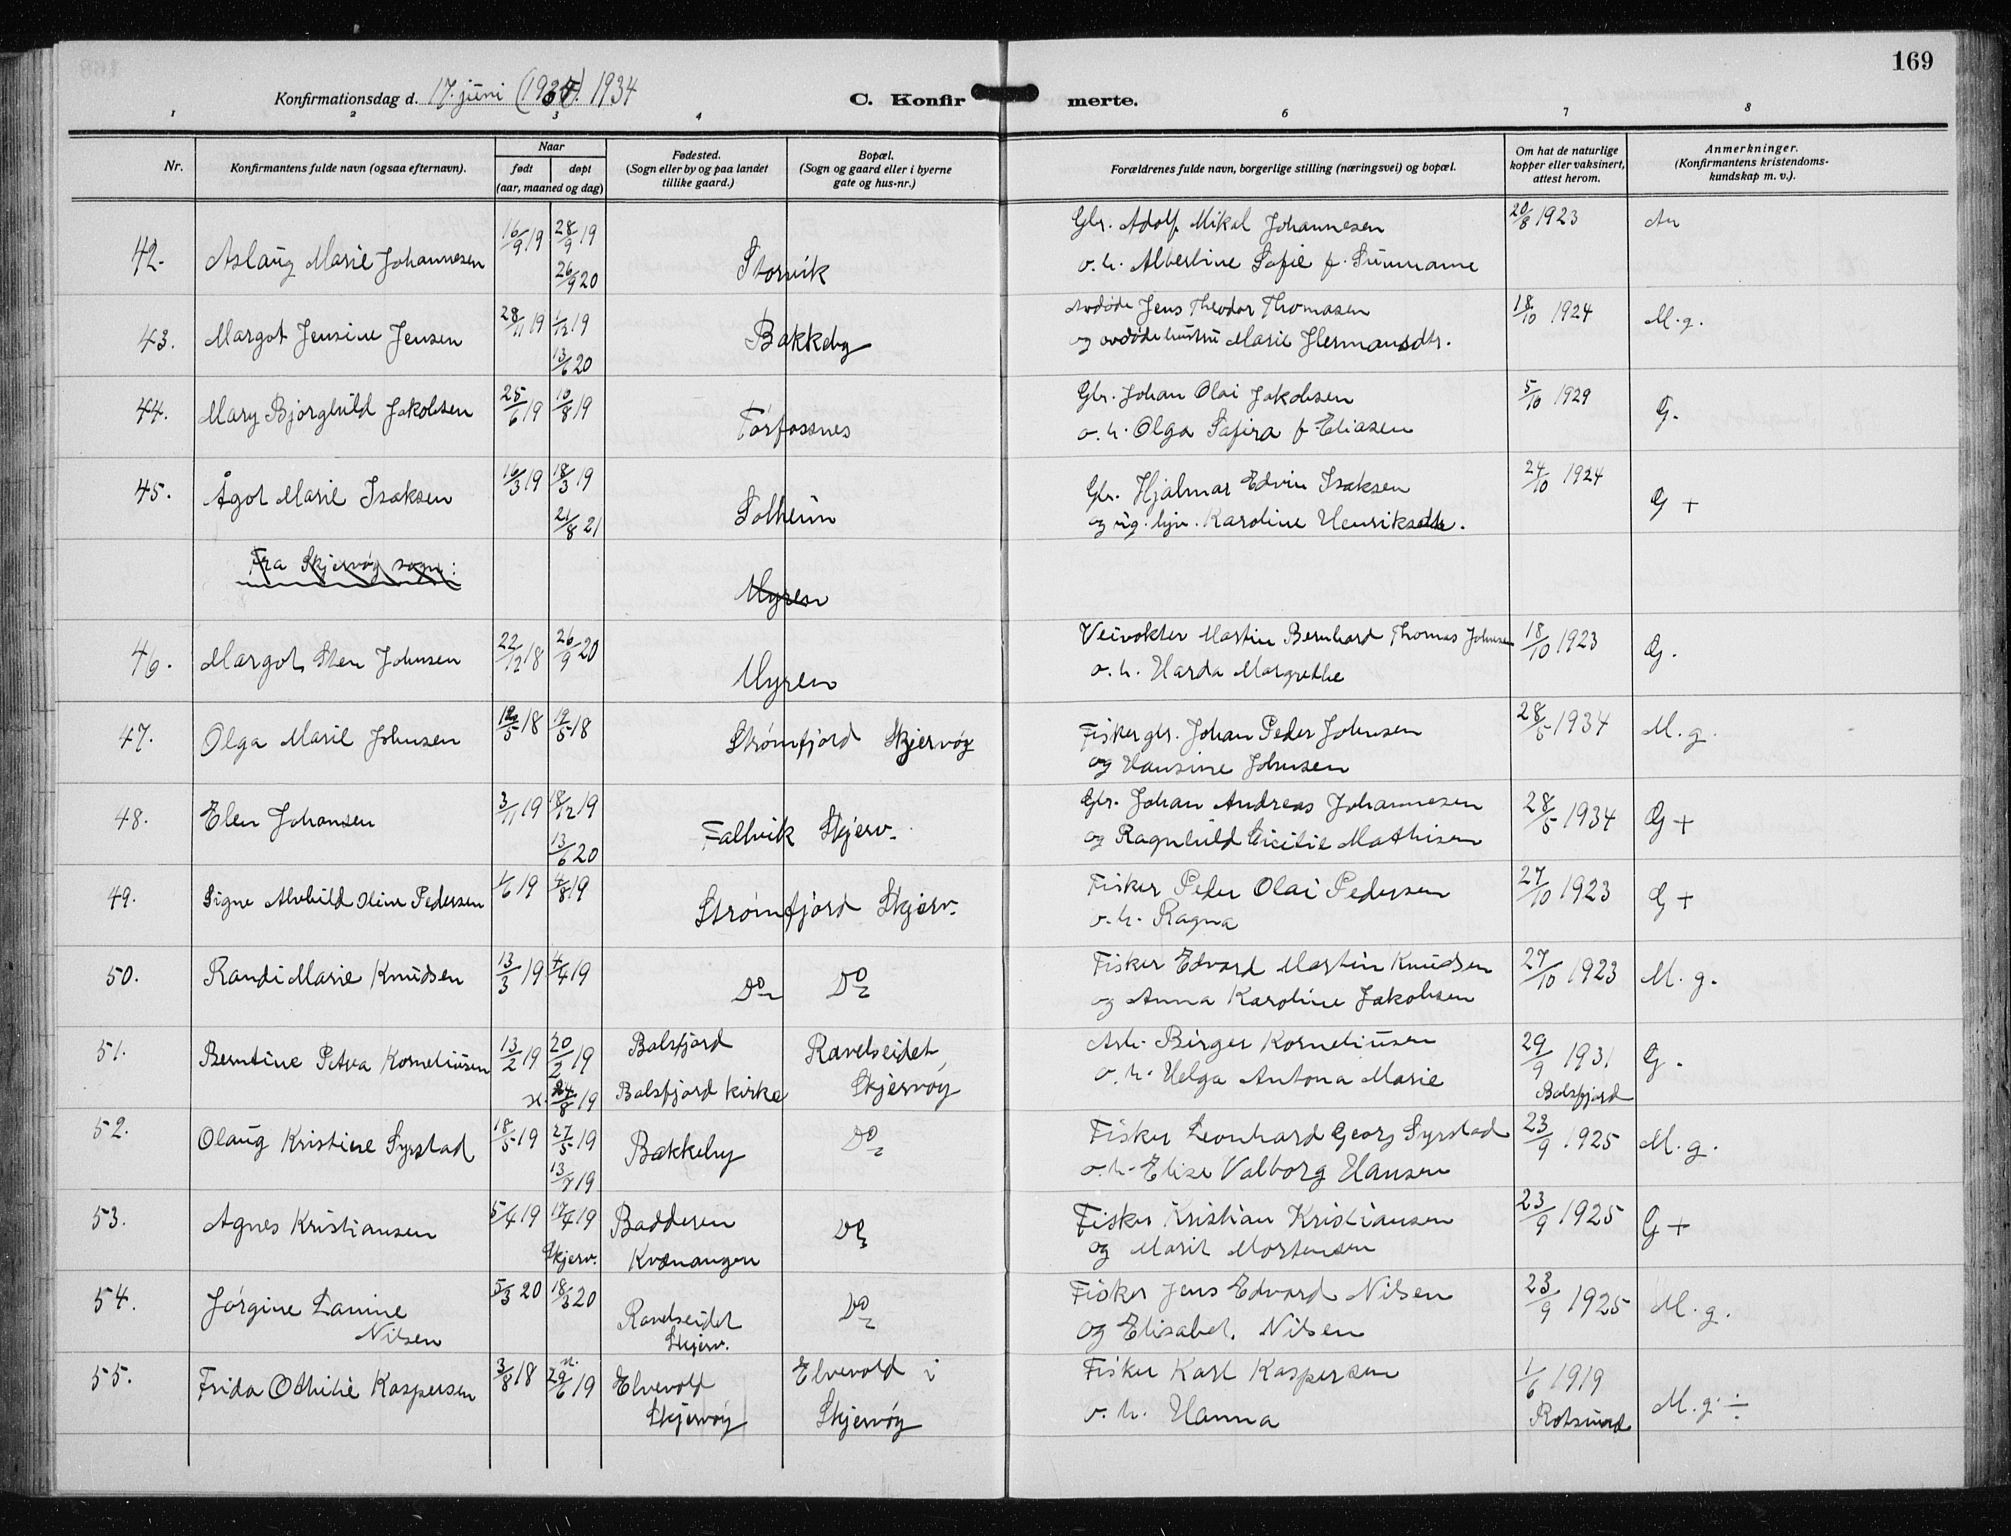 169
Konfirmationsdag d. 17. juni (1934). 1934
C. Konfirmerte.
1 2 3 4 6 7 8
Nr.
Konfirmantens fulde navn (ogsaa efternavn).
Naar
født døpt
(aar, maaned og dag)
Fødested.
(Sogn eller by og paa landet
tillike gaard.)
Bopæl.
(Sogn og gaard eller i byerne
gate og hus-nr.)
Forældrenes fulde navn, borgerlige stilling (næringsvei) og bopæl.
Om hat de naturlige
kopper eller vaksinert,
attest herom.
Anmerkninger.
(Konfirmantens kristendoms-
kundskap m. v.).
42. Aslaug Marie Johannesen 16/9 19 28/9 19 Storvik Gbr. Adolf Mikal Johannesen 20/8 1923
26/9 20 o. h. Albertine Sofie f.
43. Margot Jensine Jensen 28/11 19 1/12 19 Bakkeby Avdøde Jens Theodor Thomasen 18/10 1924 M.g.
13/6 20 og avdøde hustru Marie Hermansdtr.
44. Mary Bjørghild Jakobsen 25/6 19 10/8 19 Førfossnes Gbr. Johan Olai Jakobsen 5/10 1929 G.
o. h. Olga Safira f. Eliasen
45. Ågot Marie Isaksen 16/3 19 18/3 19 Solheim Gbr. Hjalmar Edvin Isaksen 24/10 1924 G +
21/8 21 og ug. hjv. Karoline Henriksdtr.
Fra Skjervøy sogn:
Myren
46. Margot Sten Johnsen 22/12 18 26/9 20 Myren Veivokter Martin Bernhard Thomas Johnsen 18/10 1923 G.
o. h. Harda Margrethe
47. Olga Marie Johnsen 12/5 18 19/5 18 Strømfjord Skjervøy Fisker gbr. Johan Peder Johnsen 28/5 1934 M.g.
og Hansine Johnsen
48. Elen Johansen 3/11 19 18/12 19 Fallvik Skjerv. Gbr. Johan Andreas Johannesen 28/5 1934 G +
13/6 20 og Ragnhild Cicilie Mathisen
49. Signe Alvhild Oline Pedersen 1/6 19 4/8 19 Strømfjord Skjerv. Fisker Peder Olai Pedersen 27/10 1923 G +
o. h. Ragna
50. Randi Marie Knudsen 13/3 19 4/4 19 Do Do Fisker Edvard Martin Knudsen 27/10 1923 M.g.
og Anna Karoline Jakobsen
51. Berntine Petra Korneliusen 13/2 19 20/2 19 Balsfjord Ravelseidet Arb. Birger Korneliusen 29/9 1931 G.
24/8 19 Balsfjord kirke Skjervøy o. h. Helga Antona Marie Balsfjord
52. Olaug Kristine Syrstad 18/5 19 27/5 19 Bakkeby Do Fisker Leonhard Georg Syrstad 23/9 1925 M.g.
13/7 19 o. h. Elise Valborg Hansen
53. Agnes Kristiansen 5/4 19 17/4 19 Badderen Do Fisker Kristian Kristiansen 23/9 1925 G +
Skjerv. Kvænangen og Marit Mortensen
54. Jørgine Lanine 5/3 20 18/3 20 Ravelseidet Do Fisker Jens Edvard Nilsen 23/9 1925 M.g.
Nilsen Skjerv. og Elisabet Nilsen
55. Frida Othilie Kaspersen 3/8 18 29/6 19 Elvevold Elvevold i Fisker Karl Kaspersen 1/6 1919 M.g. ÷
Skjervøy Skjervøy o. h. Hanna Rotsund